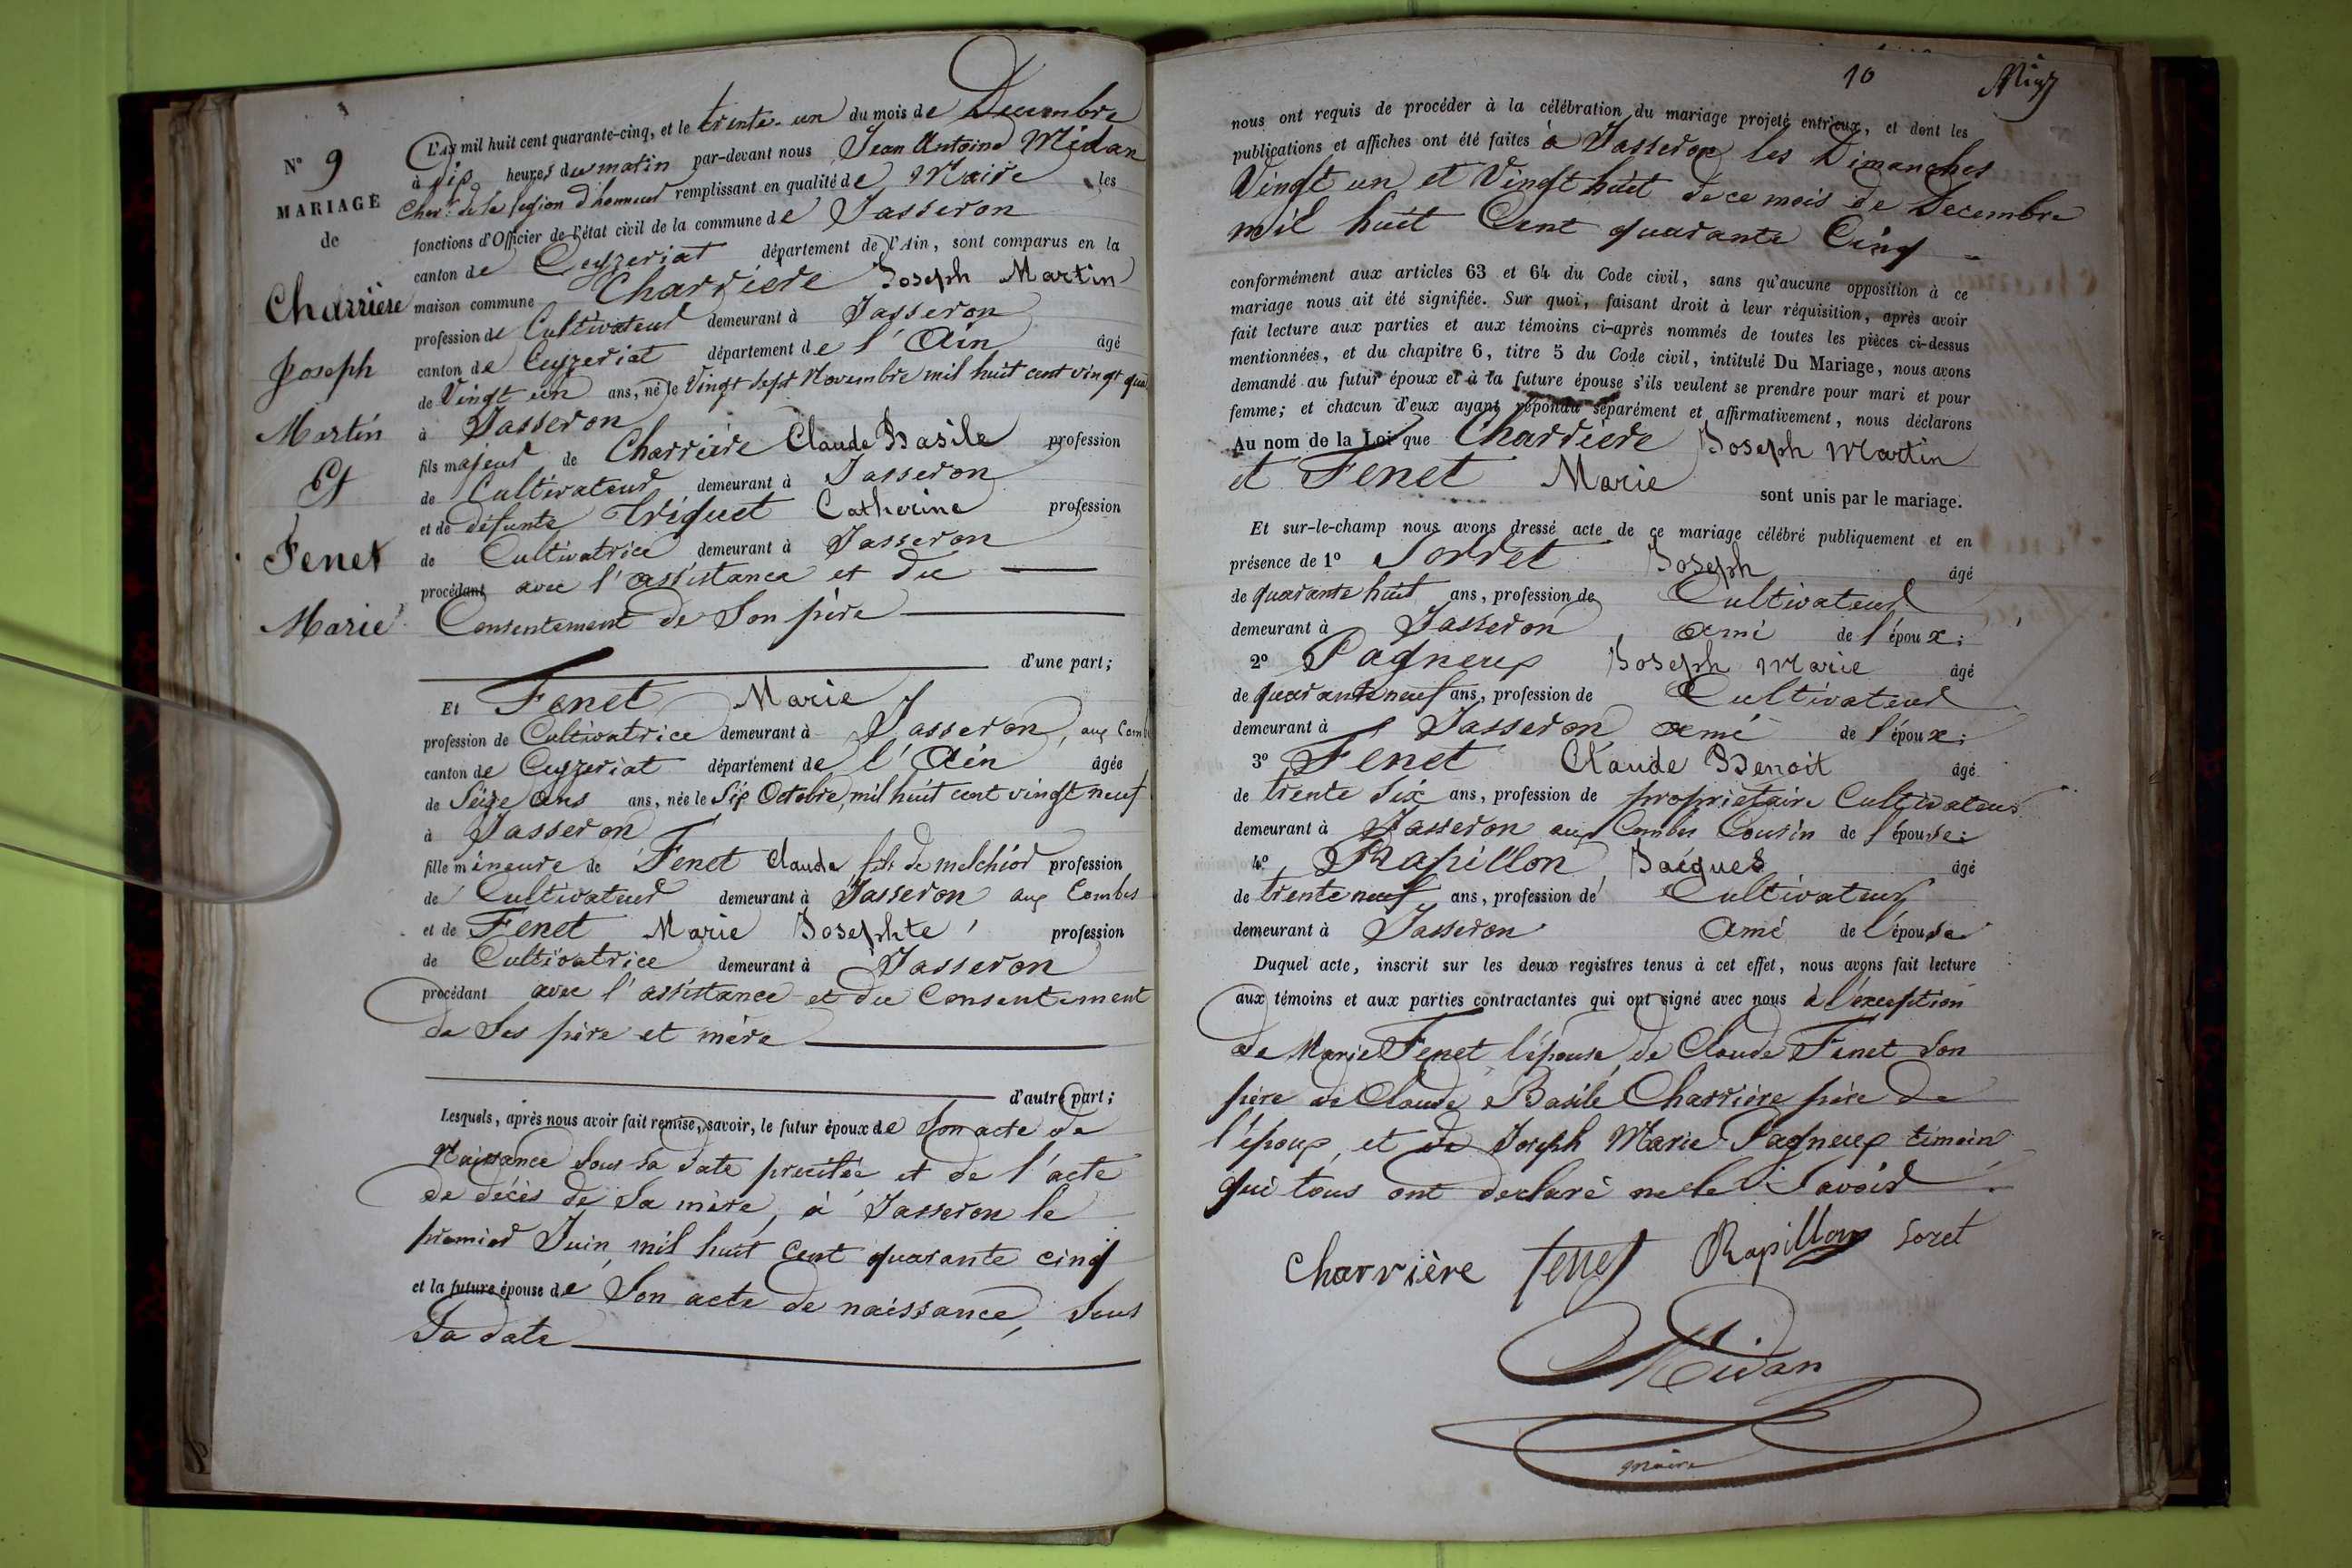 N° 9
MARIAGE
de
Charrière
Joseph
Martin
Et
Fenet
Marie
L'AN mil huit cent quarante-cinq, et le trente-un du mois de Decembre
à six heures du matin par-devant nous Jean Antoine Midan
Cher. de la légion d'honneur remplissant en qualité de Maire les
fonctions d'Officier de l'état civil de la commune de Jasseron
canton de Ceyzeriat département de l'Ain, sont comparus en la
maison commune Charrière Joseph Martin
profession de Cultivateur demeurant à Jasseron
canton de Ceyzeriat département de l'Ain âgé
de Vingt un ans, né le Vingt sept Novembre mil huit cent vingt qua
à Jasseron
fils majeur de Charrière Claude Basile profession
de Cultivateur demeurant à Jasseron
et de défunte Triquet Catherine profession
de Cultivatrice demeurant à Jasseron
procédant avec l'assistance et du
Consentement de Son père
d'une part;
Et Fenet Marie
profession de Cultivatrice demeurant à Jasseron, aux Comb
canton de Ceyzeriat département de l'Ain âgée
de Seize ans ans, née le Six Octobre, mil huit cent vingt neuf
à Jasseron
fille mineure de Fenet Claude, fils de melchior profession
de Cultivateur demeurant à Jasseron aux Combes
et de Fenet Marie Josephte, profession
de Cultivatrice demeurant à Jasseron
procédant avec l'assistance et du Consentement
de Ses père et mère
d'autre part;
Lesquels, après nous avoir fait remise, savoir, le futur époux de Son acte de
Naissance Sous Sa date precitée et de l'acte
de décès de Sa mère, à Jasseron le
premier Juin, mil huit Cent quarante cinq
et la future épouse de Son acte de naissance, Sous
Sa date
10
nous ont requis de procéder à la célébration du mariage projeté entr'eux, et dont les
publications et affiches ont été faites à Jasseron les Dimanches
Vingt un et Vingt huit de ce mois de Decembre
mil huit Cent quarante Cinq
conformément aux articles 63 et 64 du Code civil, sans qu'aucune opposition à ce
mariage nous ait été signifiée. Sur quoi, faisant droit à leur réquisition, après avoir
fait lecture aux parties et aux témoins ci-après nommés de toutes les pièces ci-dessus
mentionnées, et du chapitre 6, titre 5 du Code civil, intitulé Du Mariage, nous avons
demandé au futur époux et à la future épouse s'ils veulent se prendre pour mari et pour
femme; et chacun d'eux ayant répondu séparément et affirmativement, nous déclarons
Au nom de la Loi que Charrière Joseph Martin
et Fenet Marie sont unis par le mariage.
Et sur-le-champ nous avons dressé acte de ce mariage célébré publiquement et en
présence de 1° Sorret Joseph âgé
de quarante huit ans, profession de Cultivateur
demeurant à Jasseron, ami de l'époux;
2° Pagneux Joseph Marie âgé
de quarante neuf ans, profession de Cultivateur
demeurant à Jasseron ami de l'époux;
3° Fenet Claude Benoit âgé
de trente Six ans, profession de propriétaire Cultivateur
demeurant à Jasseron aux Combes Cousin de l'épouse;
4° Rapillon, Jacques âgé
de trente neuf ans, profession de Cultivateur
demeurant à Jasseron Ami de l'épouse
Duquel acte, inscrit sur les deux registres tenus à cet effet, nous avons fait lecture
aux témoins et aux parties contractantes qui ont signé avec nous à l'exception
de Marie Fenet, l'épouse, de Claude Fenet Son
père de Claude Basile Charrière père de
l'époux, et de Joseph Marie Pagneux témoin
qui tous ont declaré ne le Savoir
Charrière Fenet Rapillon Soret
Midan
maire